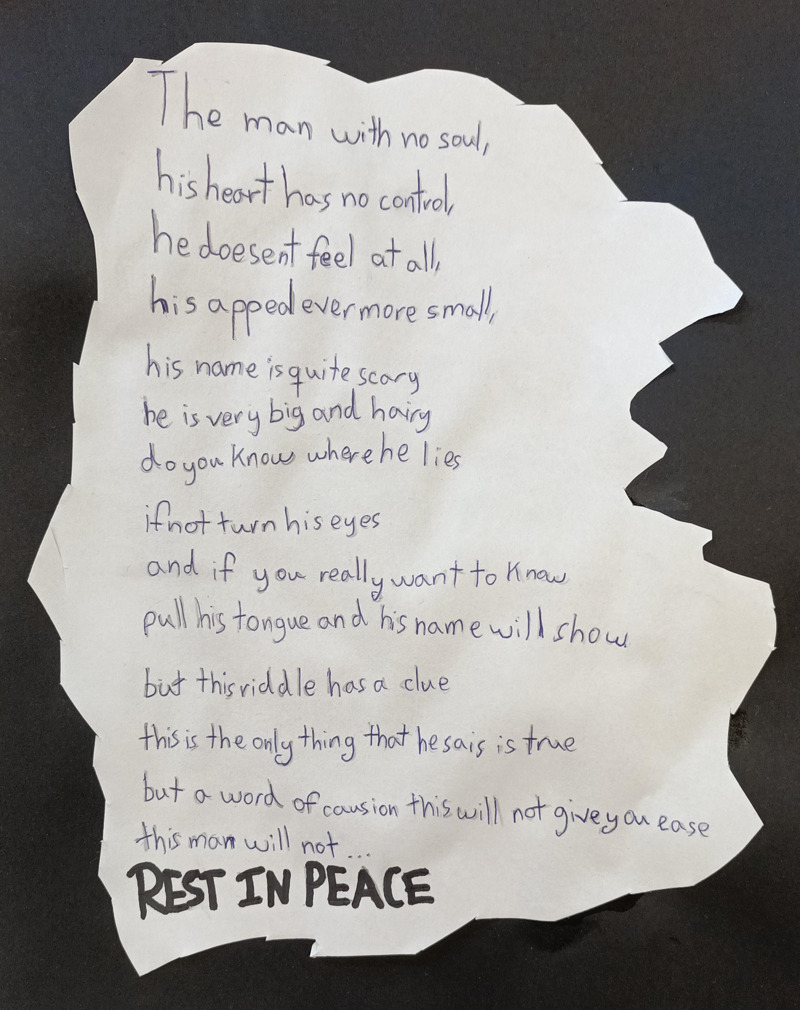 The man with no soul,
his heart has no control,
he doesent feel at all,
his apped ever more small,
his name is quite scary
he is very big and hairy
do you know where he lies
if not turn his eyes
and if you really want to know
pull his tongue and his name will show
but this riddle has a clue
this is the only thing that he sais is true
but a word of causion this will not give you ease
this man will not...
REST IN PEACE